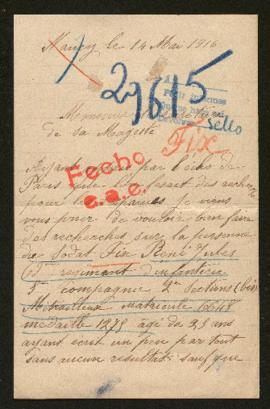 Nancy le 14 Mai 1916
29615
Sello
Monsieur
de Sa Majesté
Fix
Fecho
e.a.e.
Ayant par l'écho de
Paris que des recherches
pour les je viens
vous prier de vouloir bien faire
des recherches sur la personne
du Soldat Fix René Jules
régiment d'infanterie
5e compagnie 2me Section (bis)
Mitrailleur matricule
médaille 1278 agé de 23 ans
ayant écrit un peu partout
sans aucun résultat sauf que